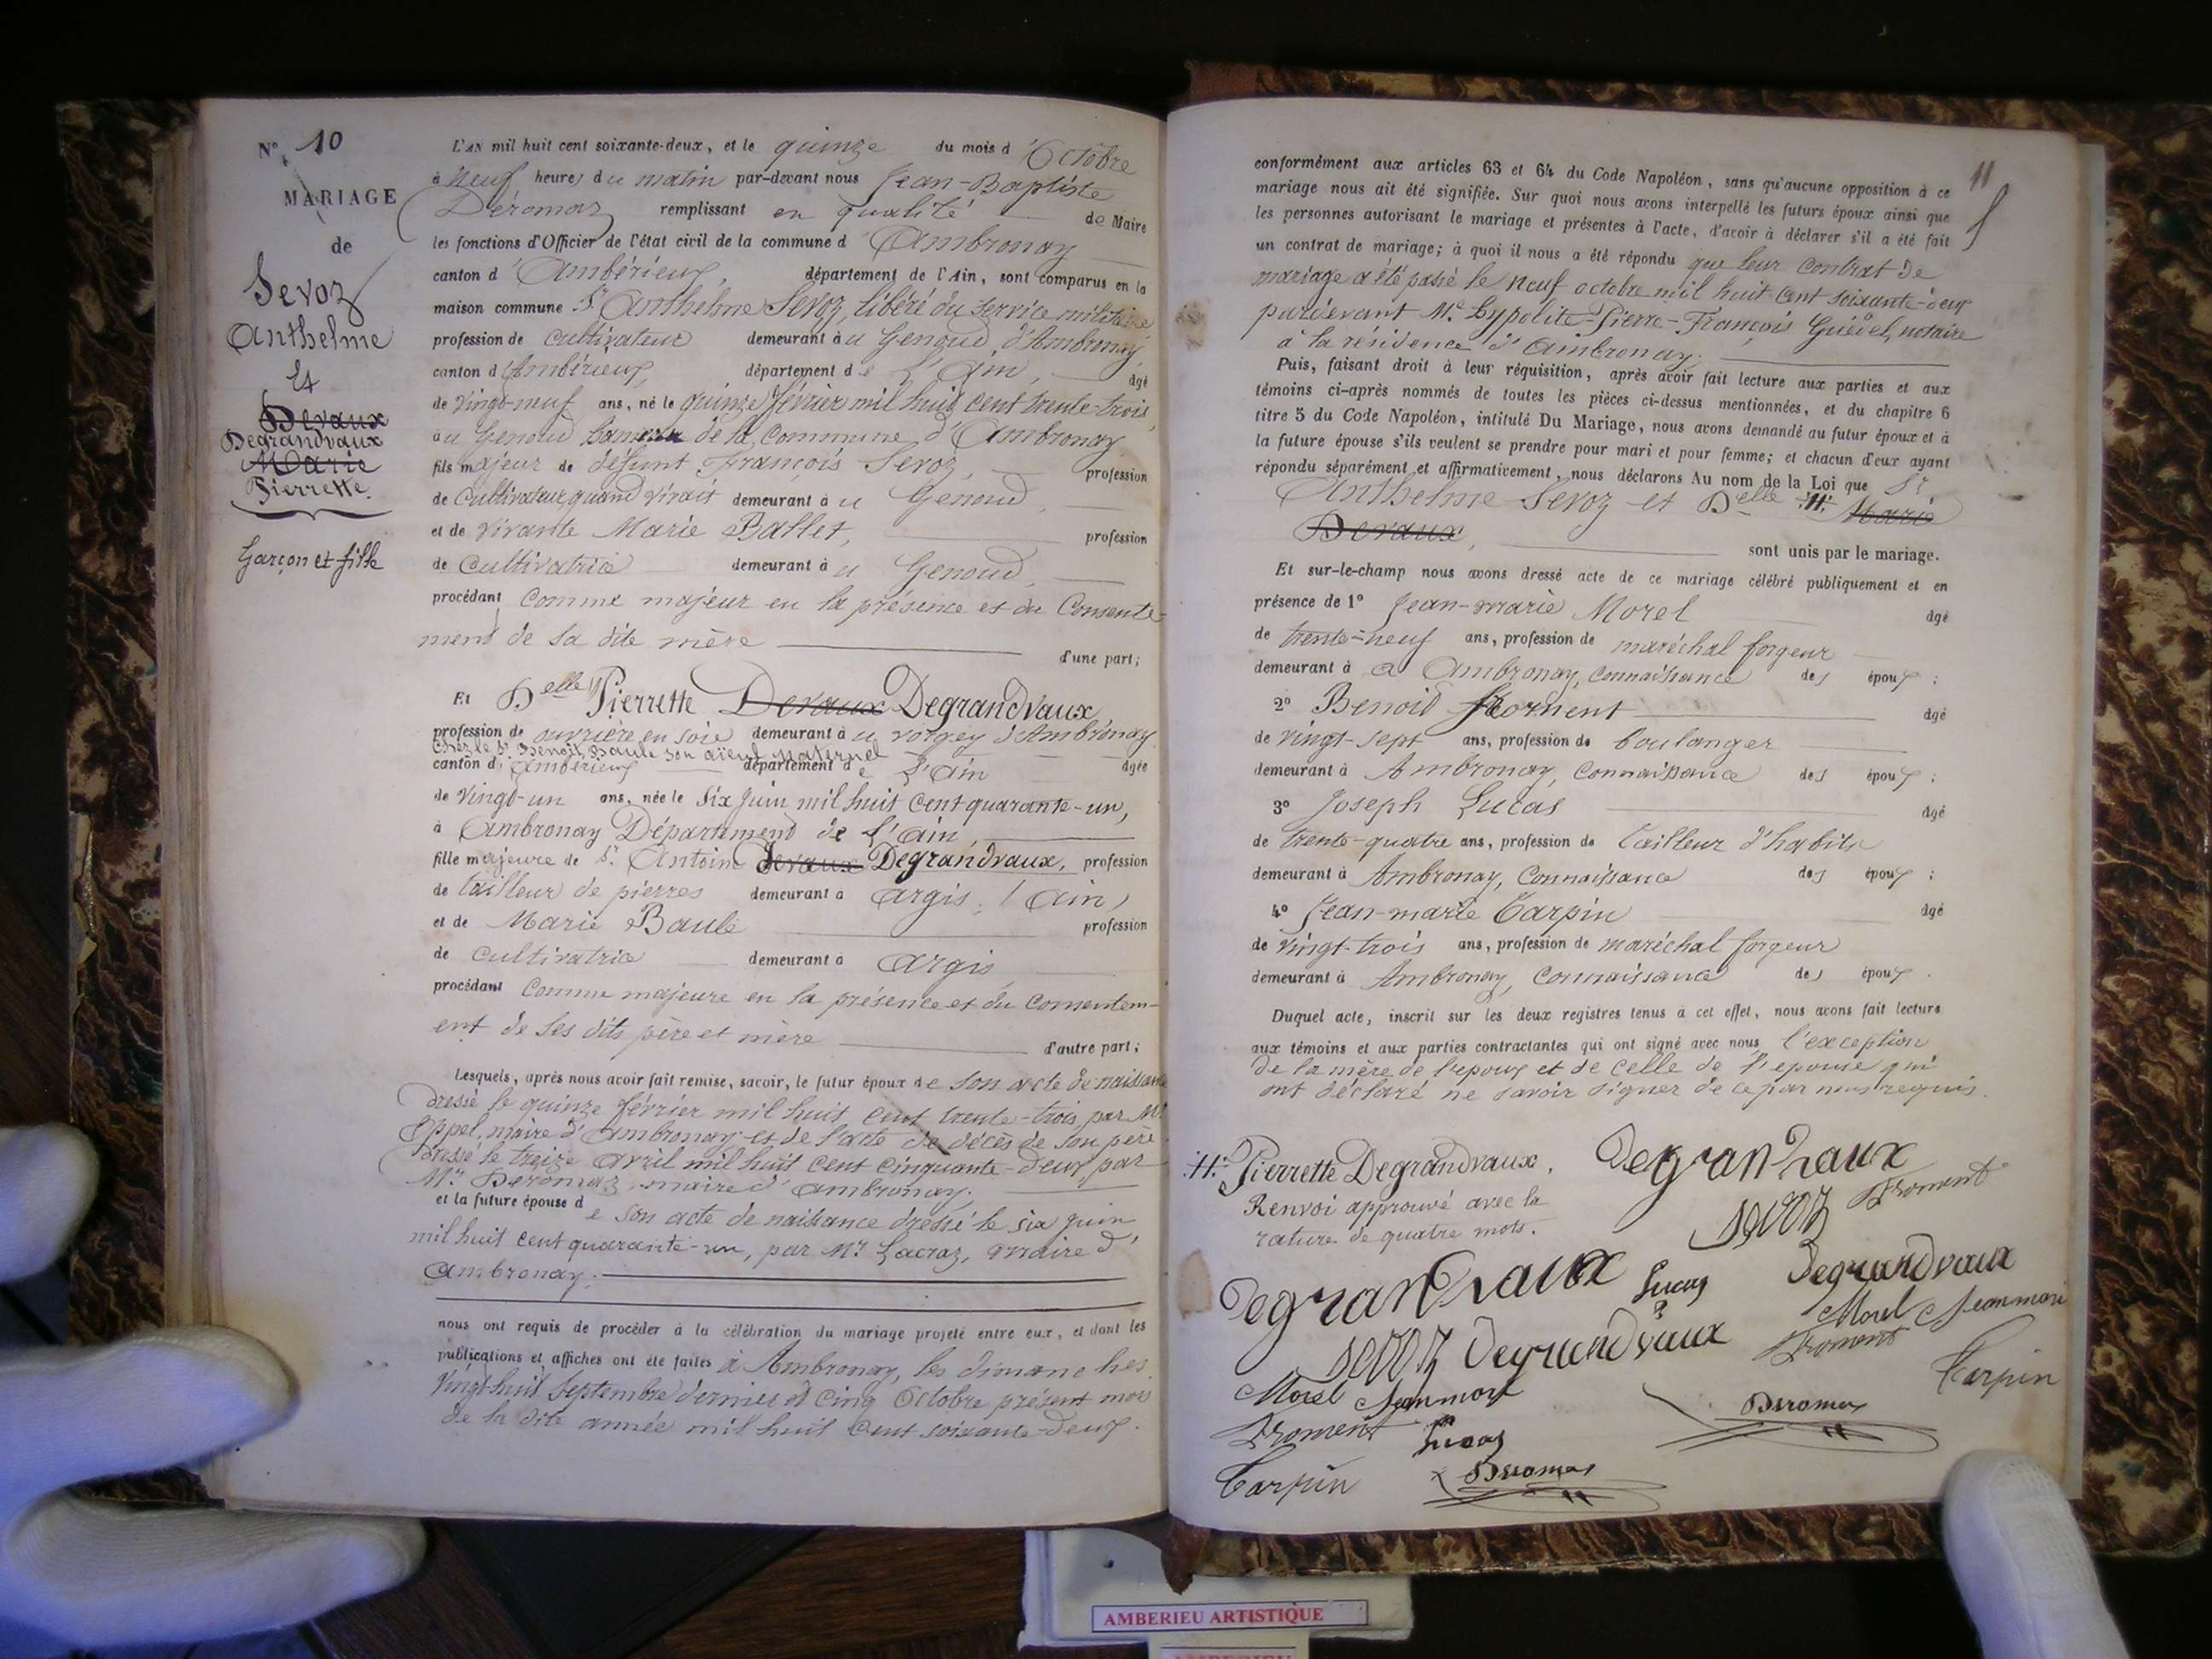 N° 10
MARIAGE
de
Sevoz
Anthelme
Et
Devaux
Degrandvaux
Marie
Pierrette.
Garçon et fille
L'AN mil huit cent soixante-deux, et le quinze du mois d'Octobre
à Neuf heures du matin par-devant nous Jean-Baptiste
Déromaz remplissant en qualité de Maire
les fonctions d'Officier de l'état civil de la commune d'Ambronay
canton d'Ambérieux, département de l'Ain, sont comparus en la
maison commune Sr Anthelme Sevoz, libéré du service militaire
profession de cultivateur demeurant au Genoud, d'Ambronay,
canton d'Ambérieux, département de l'Ain, âgé
de vingt-neuf ans, né le quinze février mil huit cent trente-trois,
au Genoud hameau de la commune d'Ambronay
fils majeur de défunt François Sevoz, profession
de Cultivateur, quand vivait demeurant au Genoud,
et de vivante Marie Ballet, profession
de Cultivatrice demeurant au Genoud,
procédant comme majeur en la présence et du Consente-
ment de sa dite mère d'une part;
Et Delle Pierrette Devaux Degrandvaux
profession de ouvrière en soie demeurant au vorgey d'Ambronay
chez le Sr Benoît Baule son aïeul maternel
canton d'Ambérieux département de l'Ain âgée
de vingt-un ans, née le Six Juin mil huit cent quarante-un,
à Ambronay Département de l'Ain,
fille majeure de Sr Antoine Devaux Degrandvaux, profession
de tailleur de pierres demeurant à Argis, (Ain)
et de Marie Baule profession
de Cultivatrice demeurant à Argis,
procédant Comme majeure en la présence et du Consentem-
ent de ses dits père et mère d'autre part;
Lesquels, après nous avoir fait remise, savoir, le futur époux de son acte de naissance
dressé le quinze février mil huit cent trente-trois, par Mr
Oppel, maire d'Ambronay et de l'acte de décès de son père
dressé le treize avril mil huit cent cinquante-deux, par
Mr Deromaz, maire d'Ambronay.
et la future épouse de son acte de naissance dressé le six juin
mil huit cent quarante-un, par Mr Lacraz, maire d'
Ambronay.
nous ont requis de procéder à la célébration du mariage projeté entre eux, et dont les
publications et affiches ont été faites à Ambronay, les dimanches
vingt-huit Septembre dernier et cinq Octobre présent mois
de la dite année mil huit cent soixante-deux.
11
conformément aux articles 63 et 64 du Code Napoléon, sans qu'aucune opposition à ce
mariage nous ait été signifiée. Sur quoi nous avons interpellé les futurs époux ainsi que
les personnes autorisant le mariage et présentes à l'acte, d'avoir à déclarer s'il a été fait
un contrat de mariage; à quoi il nous a été répondu que leur contrat de
mariage a été passé le neuf octobre mil huit cent soixante-deux
pardevant Me Hypolite-Pierre-François Guédel, notaire
à la résidence d'Ambronay.
Puis, faisant droit à leur réquisition, après avoir fait lecture aux parties et aux
témoins ci-après nommés de toutes les pièces ci-dessus mentionnées, et du chapitre 6
titre 5 du Code Napoléon, intitulé Du Mariage, nous avons demandé au futur époux et à
la future épouse s'ils veulent se prendre pour mari et pour femme; et chacun d'eux ayant
répondu séparément et affirmativement, nous déclarons Au nom de la Loi que Sr
Anthelme Sevoz et Delle .H. Marie
Devaux, sont unis par le mariage.
Et sur-le-champ nous avons dressé acte de ce mariage célébré publiquement et en
présence de 1° Jean-marie Morel âgé
de trente-neuf ans, profession de maréchal forgeur
demeurant à à Ambronay, Connaissance des époux;
2° Benoit Froment âgé
de vingt-sept ans, profession de boulanger
demeurant à Ambronay, Connaissance des époux;
3° Joseph Lucas âgé
de trente-quatre ans, profession de Tailleur d'habits
demeurant à Ambronay, Connaissance des époux;
4° Jean-marie Carpin âgé
de vingt-trois ans, profession de maréchal forgeur
demeurant à Ambronay, Connaissance des époux.
Duquel acte, inscrit sur les deux registres tenus à cet effet, nous avons fait lecture
aux témoins et aux parties contractantes qui ont signé avec nous l'exception
de la mère de l'époux et de celle de l'épouse qui
ont déclaré ne savoir signer de ce par nous requis.
.H. Pierrette Degrandvaux. Degrandvaux
Renvoi approuvé avec la
rature de quatre mots.
sevoz Froment
Degrandvaux Lucas Degrandvaux
Morel Jeanmari
sevoz Degrandvaux Froment
Morel Jeanmari Carpin
Froment Lucas Deromas
Carpin Deromas
AMBERIEU ARTISTIQUE
AMBERIEU